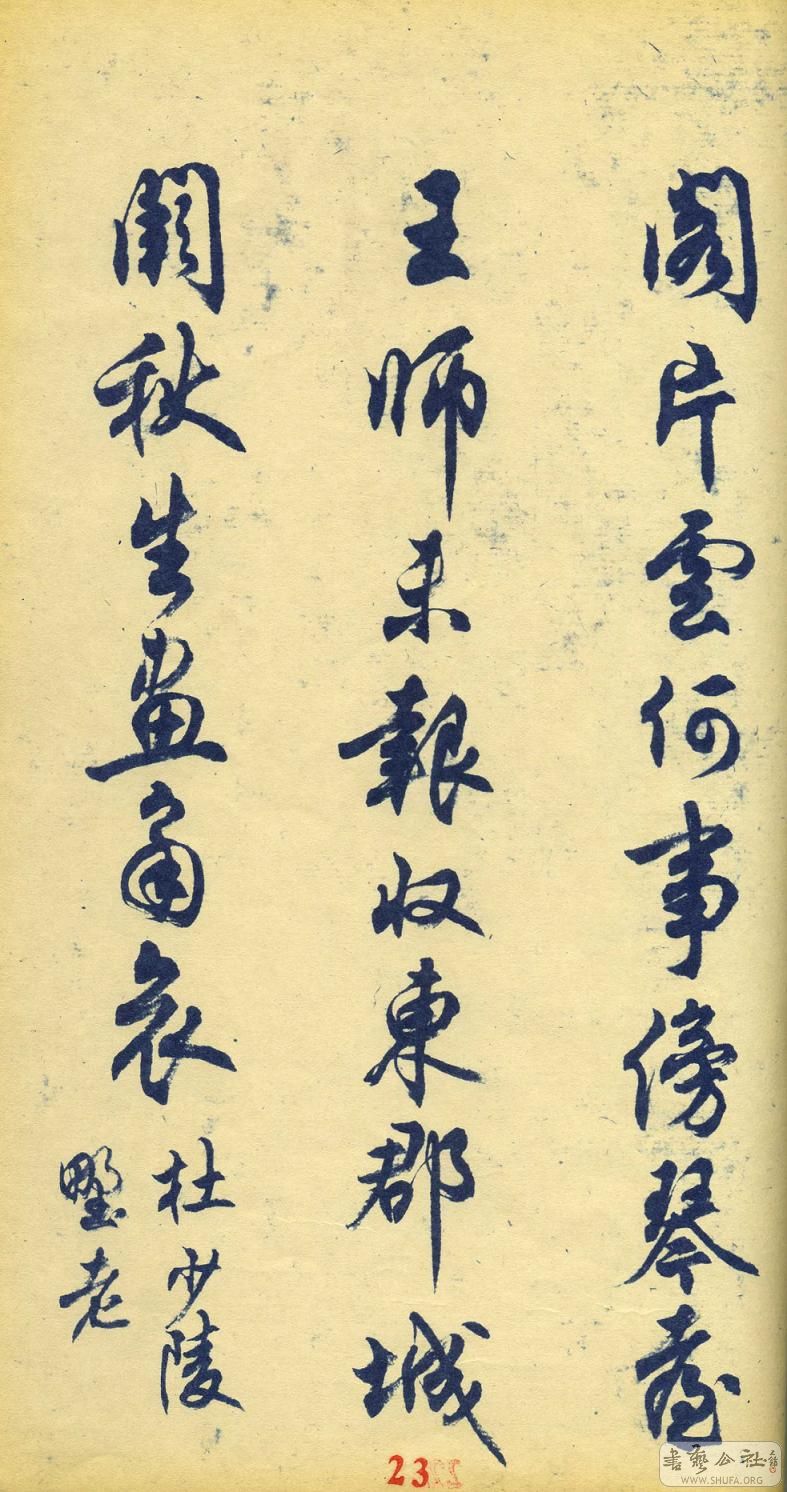 閣片雲何事傍琴臺
王師未報收東郡城
闕秋生畫角哀
杜少陵
野老
23
書藝公社
WWW.SHUFA.ORG